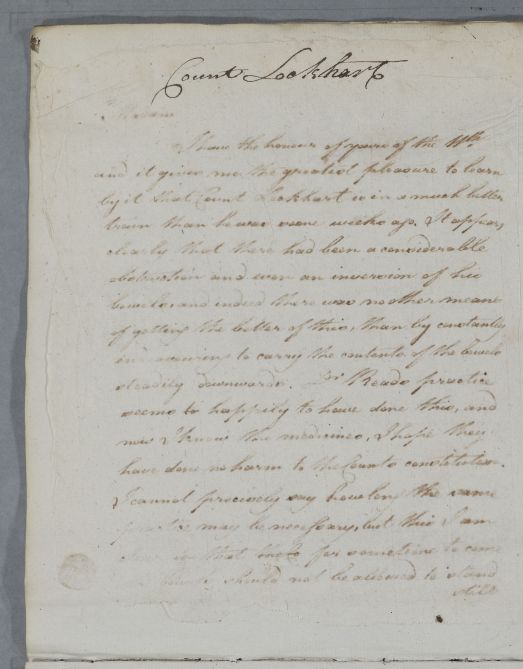 Count Lockhart
Madam
I have the honour of yours of the 11th.
and it gives me the greatest pleasure to learn
by it that Count Lockhart is in a much better
train than he was some weeks ago. It appears
clearly that there had been a considerable
obstruction and even an inversion of his
bowels, and indeed there was no other means
of getting the better of this, than by constantly
endeavouring to carry the contents of the bowels
steadily downwards. Dr Reads practice
seems to happily to have done this, and
now I know the medicines, I hope they
have done no harm to the Counts constitution.
I cannot precisely say how long the same
practice may be necessary, but this I am
clear in that for sometime to come
should not be allowed to stand
still